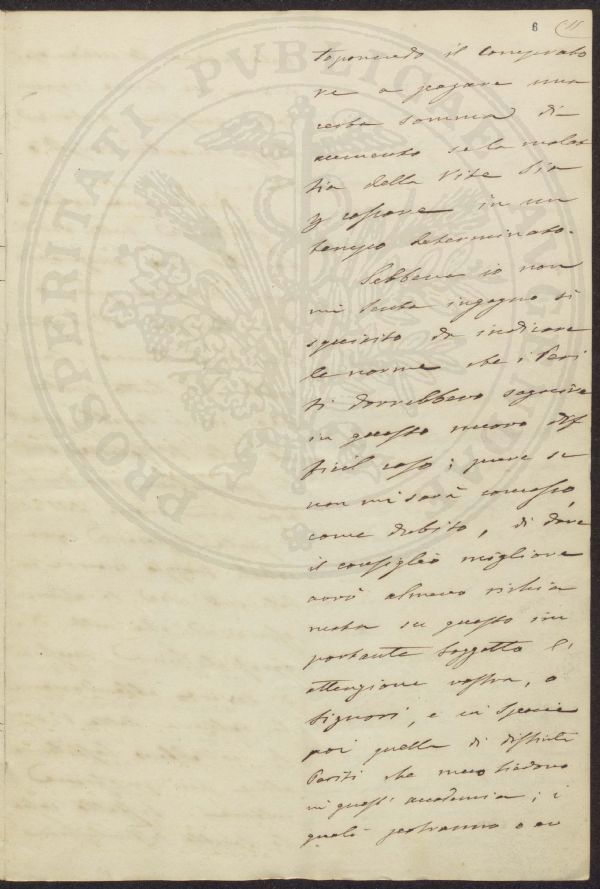 6 11
toponendo il comprato
re a pagare una
certa somma di
aumento se la malat
tia della Vite sia
p cessare in un
tempo determinato.
Sebbene io non
mi senta ingegno sì
squisito da indicare
le norme che i Peri
ti dovrebbero seguire
in questo nuovo dif
ficil caso; pure se
non mi sarà concesso,
come dubito, di dare
il consiglio migliore
avrò almeno richia
mata su questo im
portante soggetto l'
attenzione vostra, o
Signori, e in specie
poi quella di distinti
Periti che meco siedono
in quest' accademia; i
quali potranno o av
PROSPERITATI PVBLICAE AVGENDAE